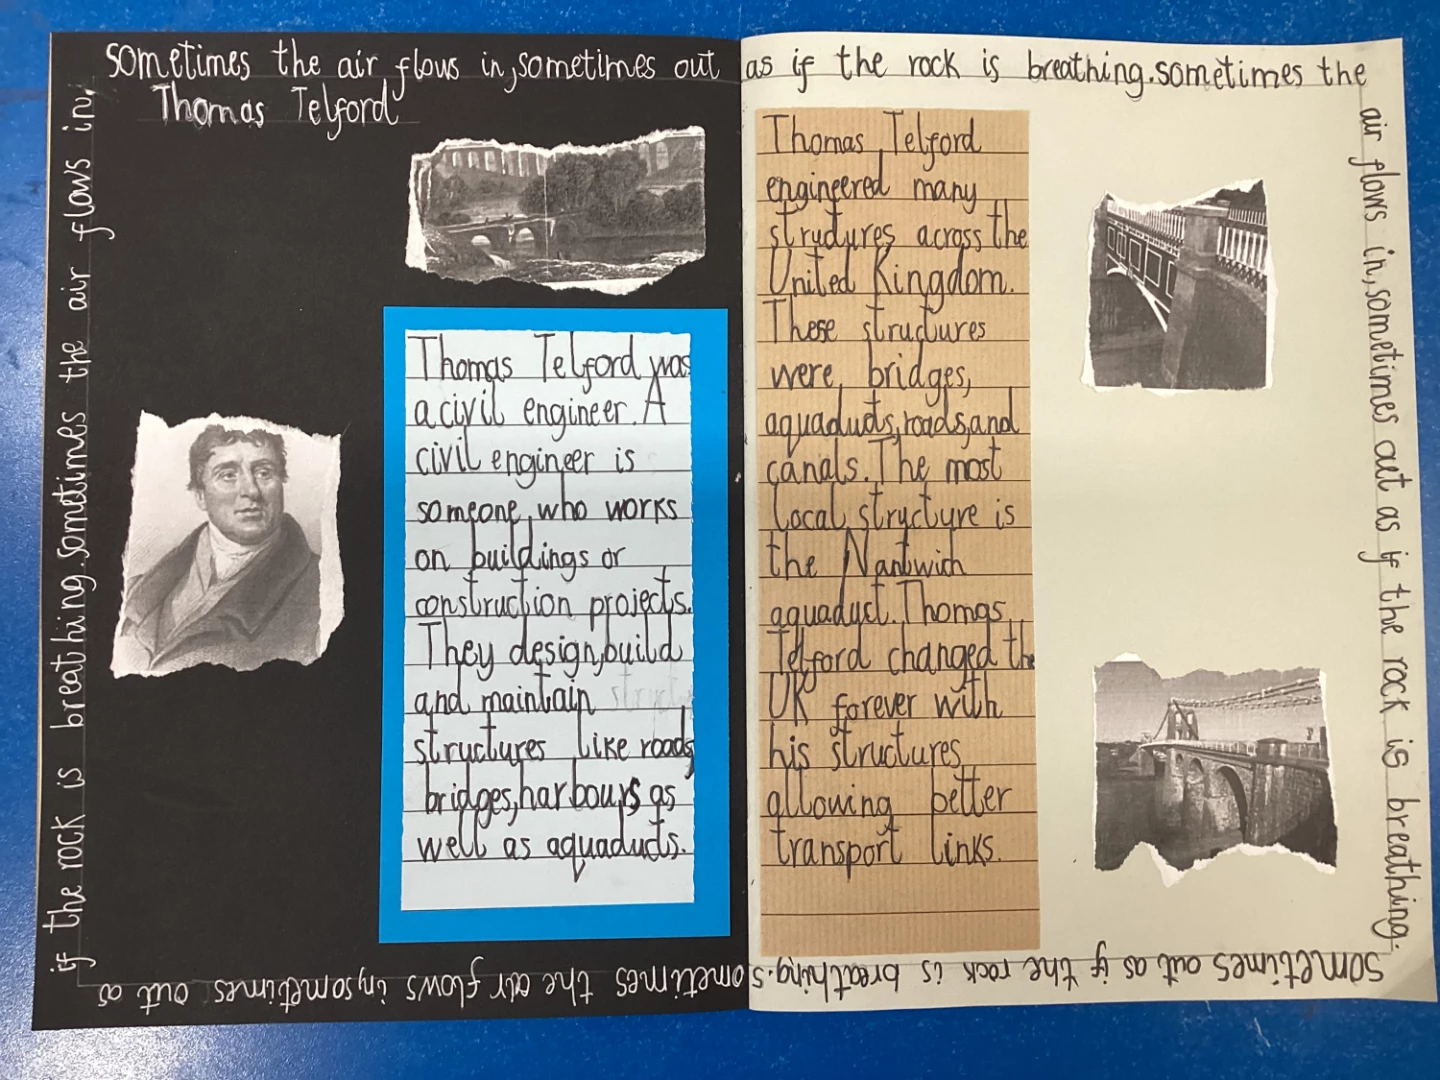 sometimes the air flows in, sometimes out as if the rock is breathing. sometimes the
air flows in, sometimes out as if the rock is breathing.
sometimes out as if the rock is breathing. sometimes the air flows in, sometimes out as
if the rock is breathing. sometimes the air flows in,
Thomas Telford
Thomas Telford was
a civil engineer. A
civil engineer is
someone who works
on buildings or
construction projects.
They design, build
and maintain
structures like roads,
bridges, harbours as
well as aquaducts.
Thomas Telford
engineered many
structures across the
United Kingdom.
These structures
were bridges,
aquaducts, roads, and
canals. The most
local structure is
the Nantwich
aquaduct. Thomas
Telford changed the
UK forever with
his structures
allowing better
transport links.